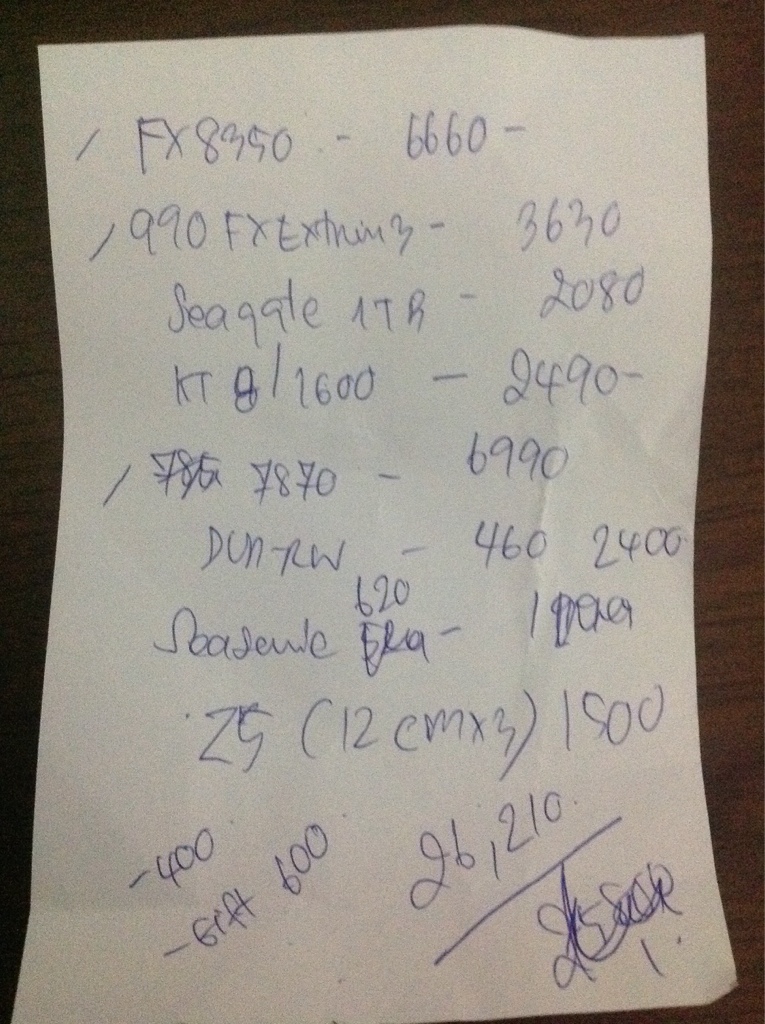 / FX8350 - 6660 -
/ 990 FX Extrim3 - 3630
Seagate 1TB - 2080
KT 8/1600 - 2490-
/ 7870 - 6990
- 460 2400
620
Seasonic -
Z5 (12 cm x 3) 1500
-400
-Gift 600
26,210